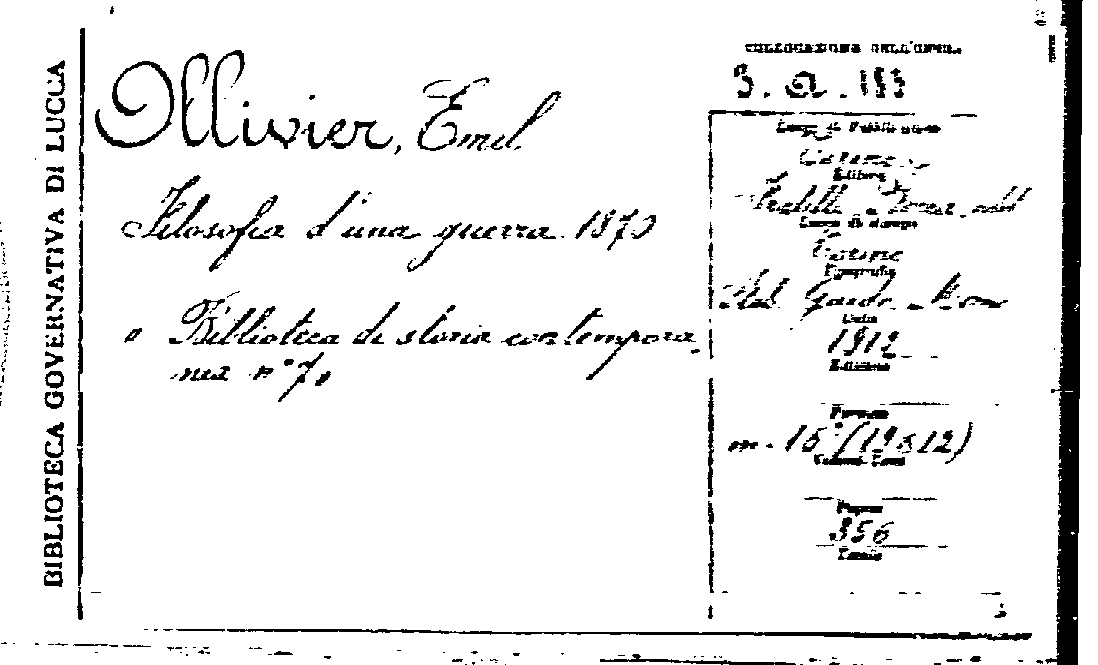 BIBLIOTECA GOVERNATIVA DI LUCCA
Ollivier, Emil.
Filosofia d'una guerra 1870
" Biblioteca di storia contempora,
nea n° 7 "
COLLOCAZIONE DELL'OPERA
3. a. 183
Luogo di Pubblicazione
Torino
Editore
Fratelli Bocca
Luogo di stampa
Torino
Tipografia
Stab.
Data
1912
Edizione
Formato
in-16° (19x12)
Volumi-Tomi
Pagine
356
Tavole